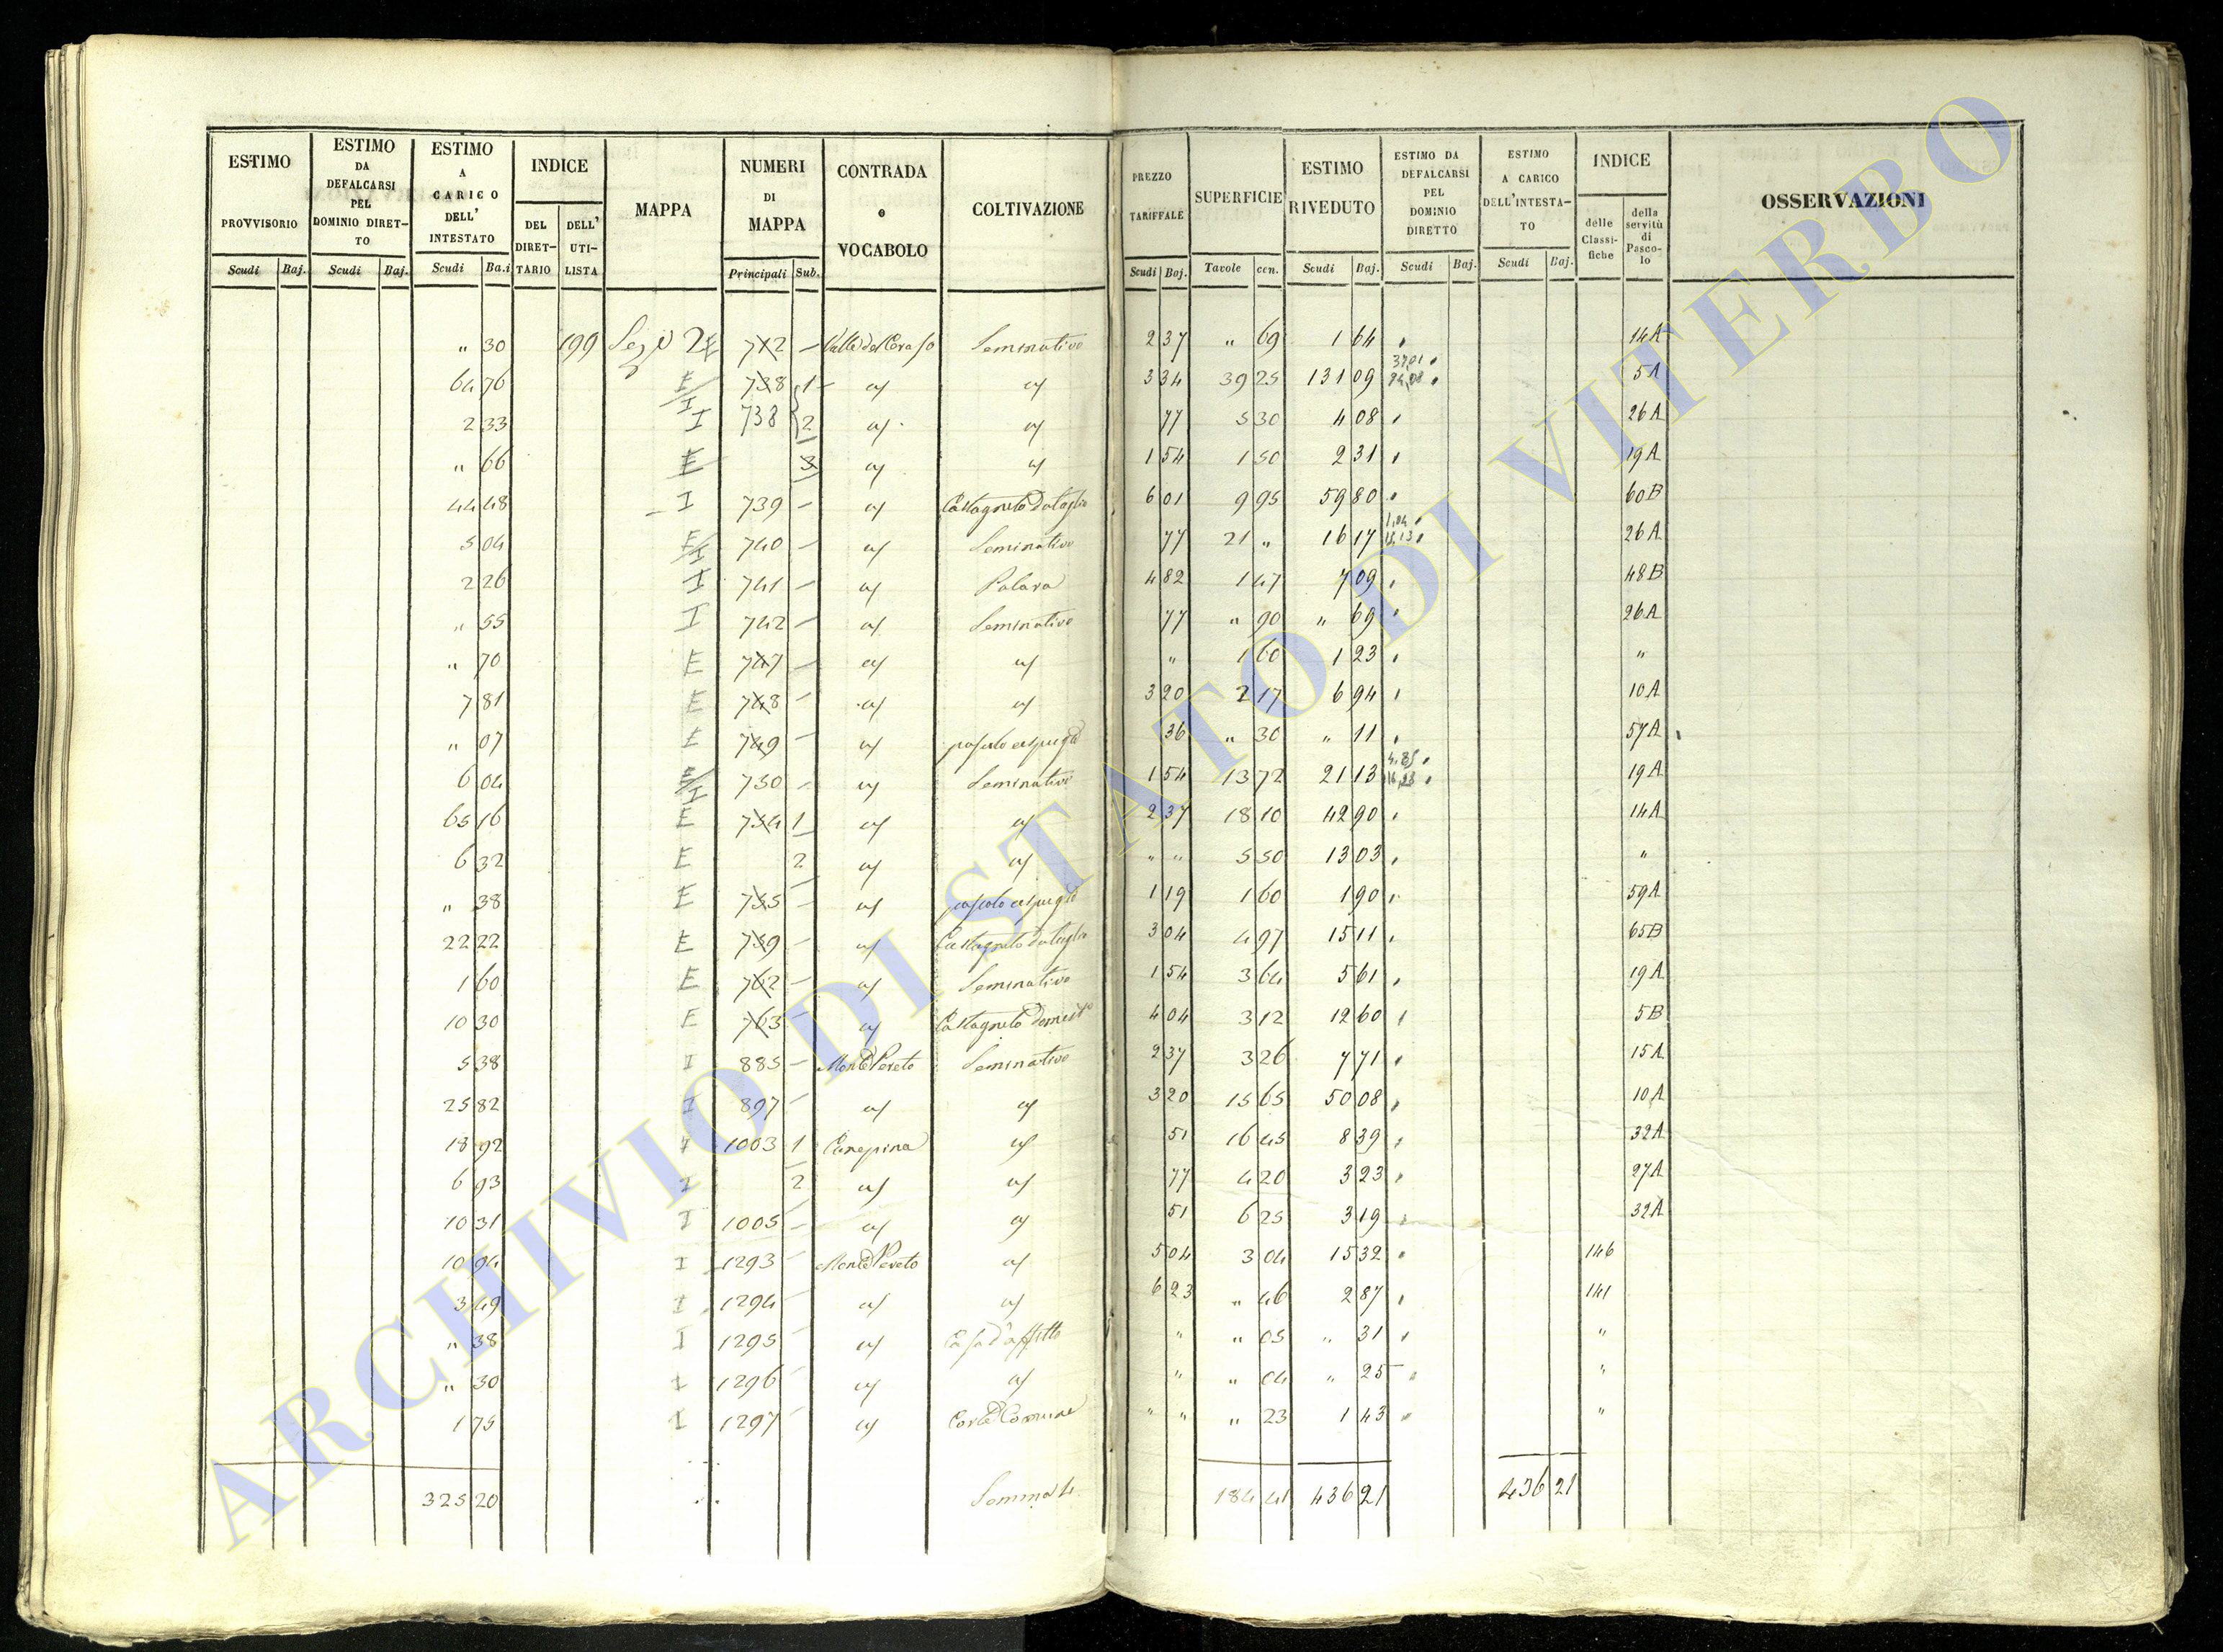 ESTIMO PROVVISORIO | ESTIMO DA DEFALCARSI PEL DOMINIO DIRET-TO | ESTIMO A CARICO DELL' INTESTATO | INDICE | MAPPA | NUMERI DI MAPPA | CONTRADA o VOCABOLO | COLTIVAZIONE | PREZZO TARIFFALE | SUPERFICIE | ESTIMO RIVEDUTO | ESTIMO DA DEFALCARSI PEL DOMINIO DIRETTO | ESTIMO A CARICO DELL'INTESTA-TO | INDICE | OSSERVAZIONI
DEL DIRET-TARIO | DELL' UTI-LISTA | delle Classi-fiche | della servitù di Pasco-lo
Scudi | Baj. | Scudi | Baj. | Scudi | Ba.i | Principali | Sub. | Scudi | Baj. | Tavole | cen. | Scudi | Baj. | Scudi | Baj. | Scudi | Baj.
" 30 | 199 | 2 E | 712 | – | Valle del Ceraso | Seminativo | 2 37 | " 69 | 1 64 | 14A
64 76 | E/I | 738 | 1 | " | " | 3 34 | 39 25 | 131 09 | 5A
2 33 | I | 738 | 2 | " | " | 77 | 5 30 | 4 08 | 26A
" 66 | E | 3 | " | " | 1 54 | 1 50 | 2 31 | 19A
44 48 | I | 739 | – | " | Castagneto da taglio | 6 01 | 9 95 | 59 80 | 60B
5 04 | E/I | 740 | – | " | Seminativo | 77 | 21 " | 16 17 | 26A
2 26 | I | 741 | – | " | Palara | 4 82 | 1 47 | 7 09 | 48B
" 55 | I | 742 | – | " | Seminativo | 77 | " 90 | " 69 | 26A
" 70 | E | 747 | – | " | " | " | 1 60 | 1 23 | "
7 81 | E | 748 | – | " | " | 3 20 | 2 17 | 6 94 | 10A
" 07 | E | 749 | – | " | pascolo cespuglio | 36 | " 30 | " 11 | 57A
6 04 | E/I | 750 | – | " | Seminativo | 1 54 | 13 72 | 21 13 | 19A
65 16 | E | 754 | 1 | " | " | 2 37 | 18 10 | 42 90 | 14A
6 32 | E | 2 | " | " | " " | 5 50 | 13 03 | "
" 38 | E | 755 | – | " | pascolo cespuglio | 1 19 | 1 60 | 1 90 | 59A
22 22 | E | 759 | – | " | Castagneto da taglio | 3 04 | 4 97 | 15 11 | 65B
1 60 | E | 762 | – | " | Seminativo | 1 54 | 3 64 | 5 61 | 19A
10 30 | E | 763 | – | " | Castagneto | 4 04 | 3 12 | 12 60 | 5B
5 38 | I | 885 | – | Monte Pereto | Seminativo | 2 37 | 3 26 | 7 71 | 15A
25 82 | I | 897 | – | " | " | 3 20 | 15 65 | 50 08 | 10A
18 92 | I | 1003 | 1 | Canepina | " | 51 | 16 45 | 8 39 | 32A
6 93 | I | 2 | " | " | 77 | 4 20 | 3 23 | 27A
10 31 | I | 1005 | – | " | " | 51 | 6 25 | 3 19 | 32A
10 94 | I | 1293 | – | Monte Pereto | " | 5 04 | 3 04 | 15 32 | 146
3 49 | I | 1294 | – | " | " | 6 23 | " 46 | 2 87 | 141
" 38 | I | 1295 | – | " | Casa d'affitto | " | " 05 | " 31 | "
" 30 | I | 1296 | – | " | " | " | " 04 | " 25 | "
1 75 | I | 1297 | – | " | Corte Comune | " " | " 23 | 1 43 | "
325 20 | 184 41 | 436 21 | 436 21
ARCHIVIO DI STATO DI VITERBO